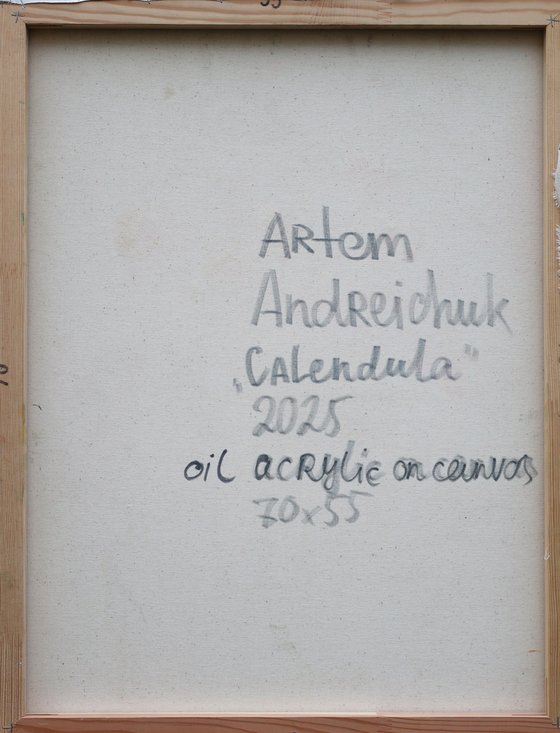 55
ARtem
AndReichuk
„CALendula"
2025
oil acRylic on canvas
70x55
70